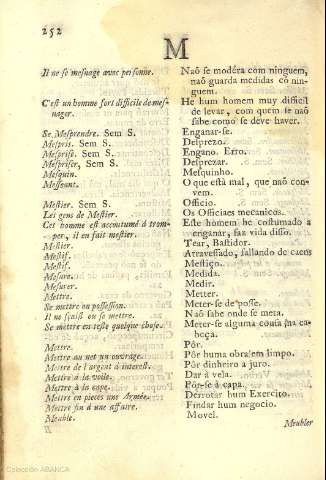 252
M
Il ne se mesnage avec personne.
Naõ se modéra com ninguem,
naõ guarda medidas co nin-
guem.
C'est un homme fort difficile de mes-
nager.
He hum homem muy difficil
de levar, com quem se naõ
sabe como se deve haver.
Se Mesprendre. Sem S.
Enganar-se.
Mespris. Sem S.
Desprezo.
Mesprise. Sem S.
Engano. Erro.
Mespriser, Sem S.
Desprezar.
Mesquin.
Mesquinho.
Messeant.
O que está mal, que naõ con-
vem.
Mestier. Sem S.
Officio.
Les gens de Mestier.
Os Officiaes mecanicos.
Cet homme est accoutumé à trom-
per, il en fait mestier.
Este homem he costumado a
enganar, faz vida disso.
Mestier.
Tear, Bastidor.
Mestif.
Atravessado, fallando de caens
Mestif.
Mestiço.
Mesure.
Medida.
Mesurer.
Medir.
Mettre.
Metter.
Se mettre en possession.
Meter-se de posse.
Il ne sçait ou se mettre.
Naõ sabe onde se meta.
Se mettre en teste quelque chose.
Meter-se alguma cousa na ca-
beça.
Mettre.
Pôr.
Mettre au net un ouvrage.
Pôr huma obra em limpo.
Mettre de l'argent à interest.
Pôr dinheiro a juro.
Mettre à la voile.
Dar à vela.
Mettre à la cape.
Pôr-se à capa.
Mettre en pieces une Armée.
Derrotar hum Exercito.
Mettre fin à une affaire.
Findar hum negocio.
Meuble.
Movel.
Meubler
Colección ABANCA